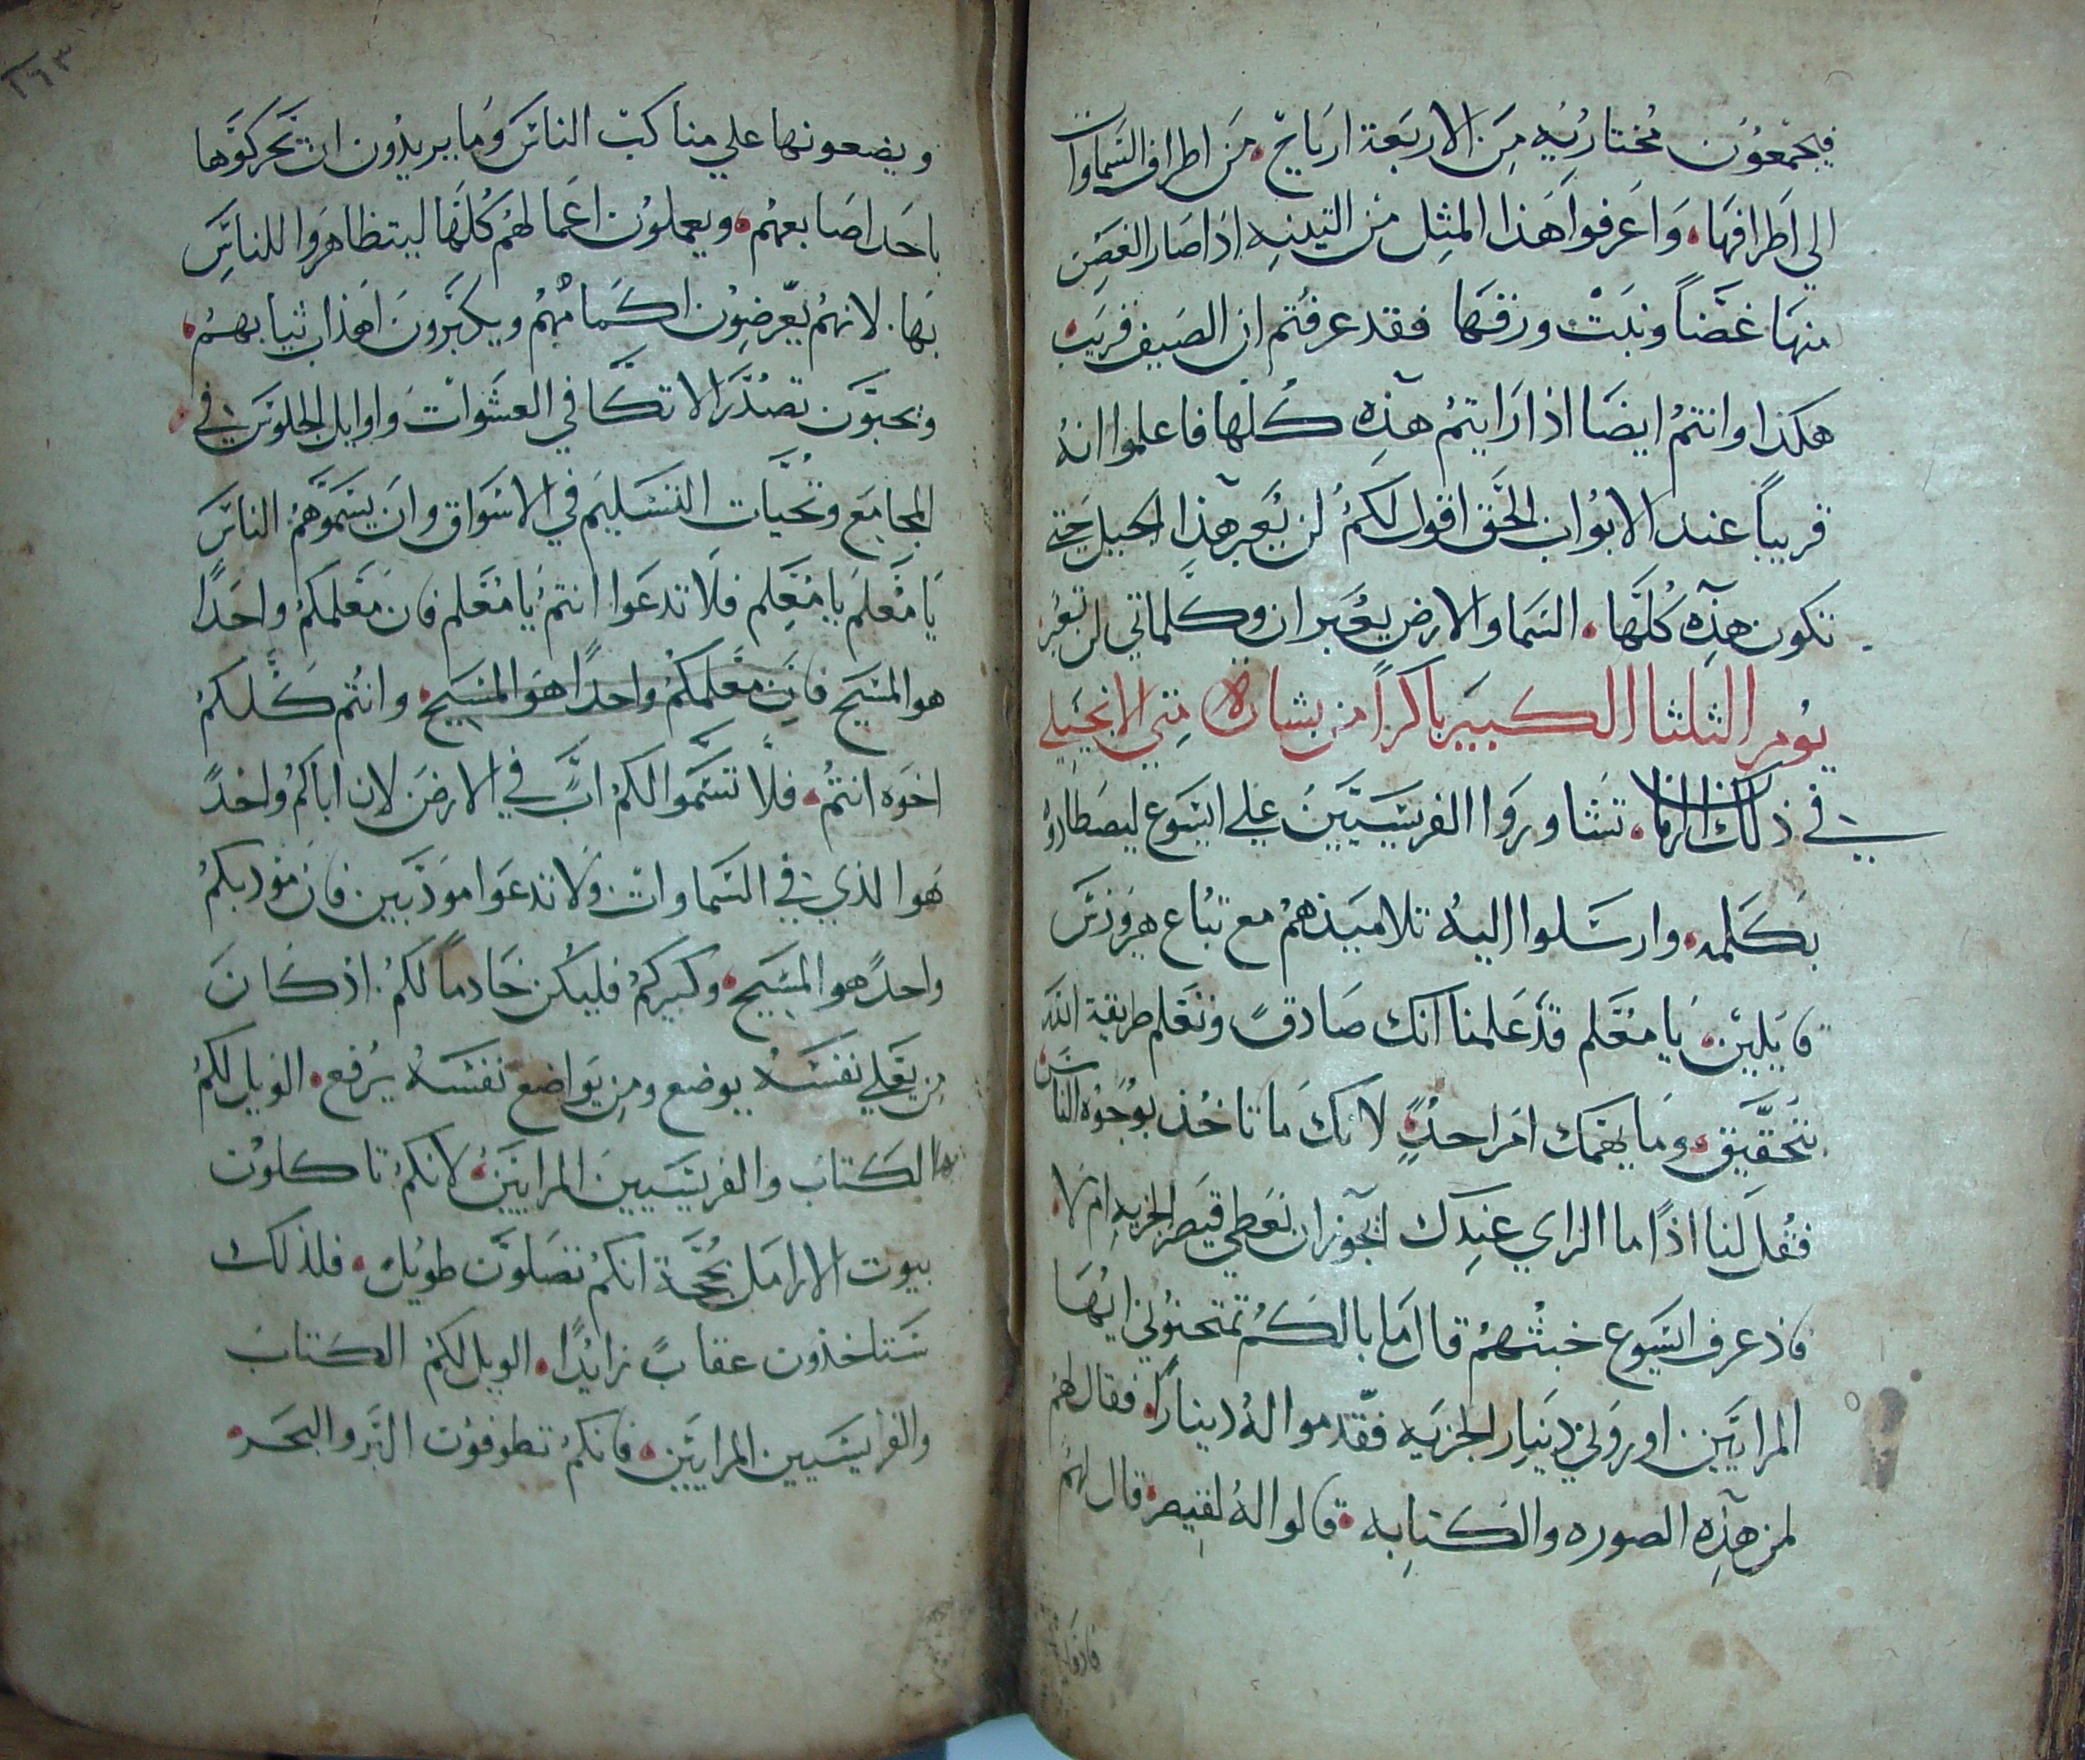 فيجمعون مختاريه من الاربعة ارياح من اطراف السماوات
الي اطرافها واعرفوا هذا المثل من التينه اذا صار الغصن
منها غضناً ونبت ورقها فقد عرفتم ان الصيف قريب
هكذا وانتم ايضا اذا رايتم هذه كلها فاعلموا انه
قريباً عند الابواب الحق اقول لكم لن يعبر هذا الجيل حتي
تكون هذه كلها السما والارض يعبران وكلماتي لن تعبر
يوم الثلثا الكبير باكراً من بشارة متي الانجيلي
في ذلك الزمان تشاوروا الفريسيين علي ايسوع ليصطادوه
بكلمه وارسلوا اليه تلاميذهم مع تباع هرودس
قايلين يا معلم قد علمنا انك صادق وتعلم طريقة الله
بتحقيق وما يهمك امر احدٍ لانك ما تاخذ بوجوه الناس
فقل لنا اذًا ما الراي عندك ايجوز ان نعطي قيصر الجزيه ام لا
فاذ عرف ايسوع خبثهم قال ما بالكم تمتحنوني ايها
المرايين اوروني دينار الجزيه فقدموا له ديناراً فقال لهم
لمن هذه الصوره والكتابه قالوا له لقيصر قال لهم
٢٦٣
ويضعونها علي مناكب الناس وما يريدون ان يحركوها
باحد اصابعهم ويعملون اعمالهم كلها ليتظاهروا للناس
بها لانهم يعرضون اكمامهم ويكبرون اهذاب ثيابهم
ويحبون تصدر الاتكا في العشوات واوايل الجلوس في
المجامع وتحيات التسليم في الاسواق وان يسموهم الناس
يا معلم يا معلم فلا تدعوا انتم يا معلم فان معلمكم واحدًا
هو المسيح فان معلمكم واحدًا هو المسيح وانتم كلكم
اخوه انتم فلا تسموا لكم ابً في الارض لان اباكم واحدً
هوا لذي في السماوات ولا تدعوا مودبين فان مودبكم
واحدً هو المسيح وكبيركم فليكن خادماً لكم اذ كان
من يعلي نفسه يوضع ومن يواضع نفسه يرفع الويل لكم
الكتاب والفريسيين المرايين لانكم تاكلون
بيوت الارامل بحجة انكم تصلون طويلً فلذلك
ستاخذون عقابً زايدًا الويل لكم الكتاب
والفرايسيين المرايين فانكم تطوفون البر والبحر